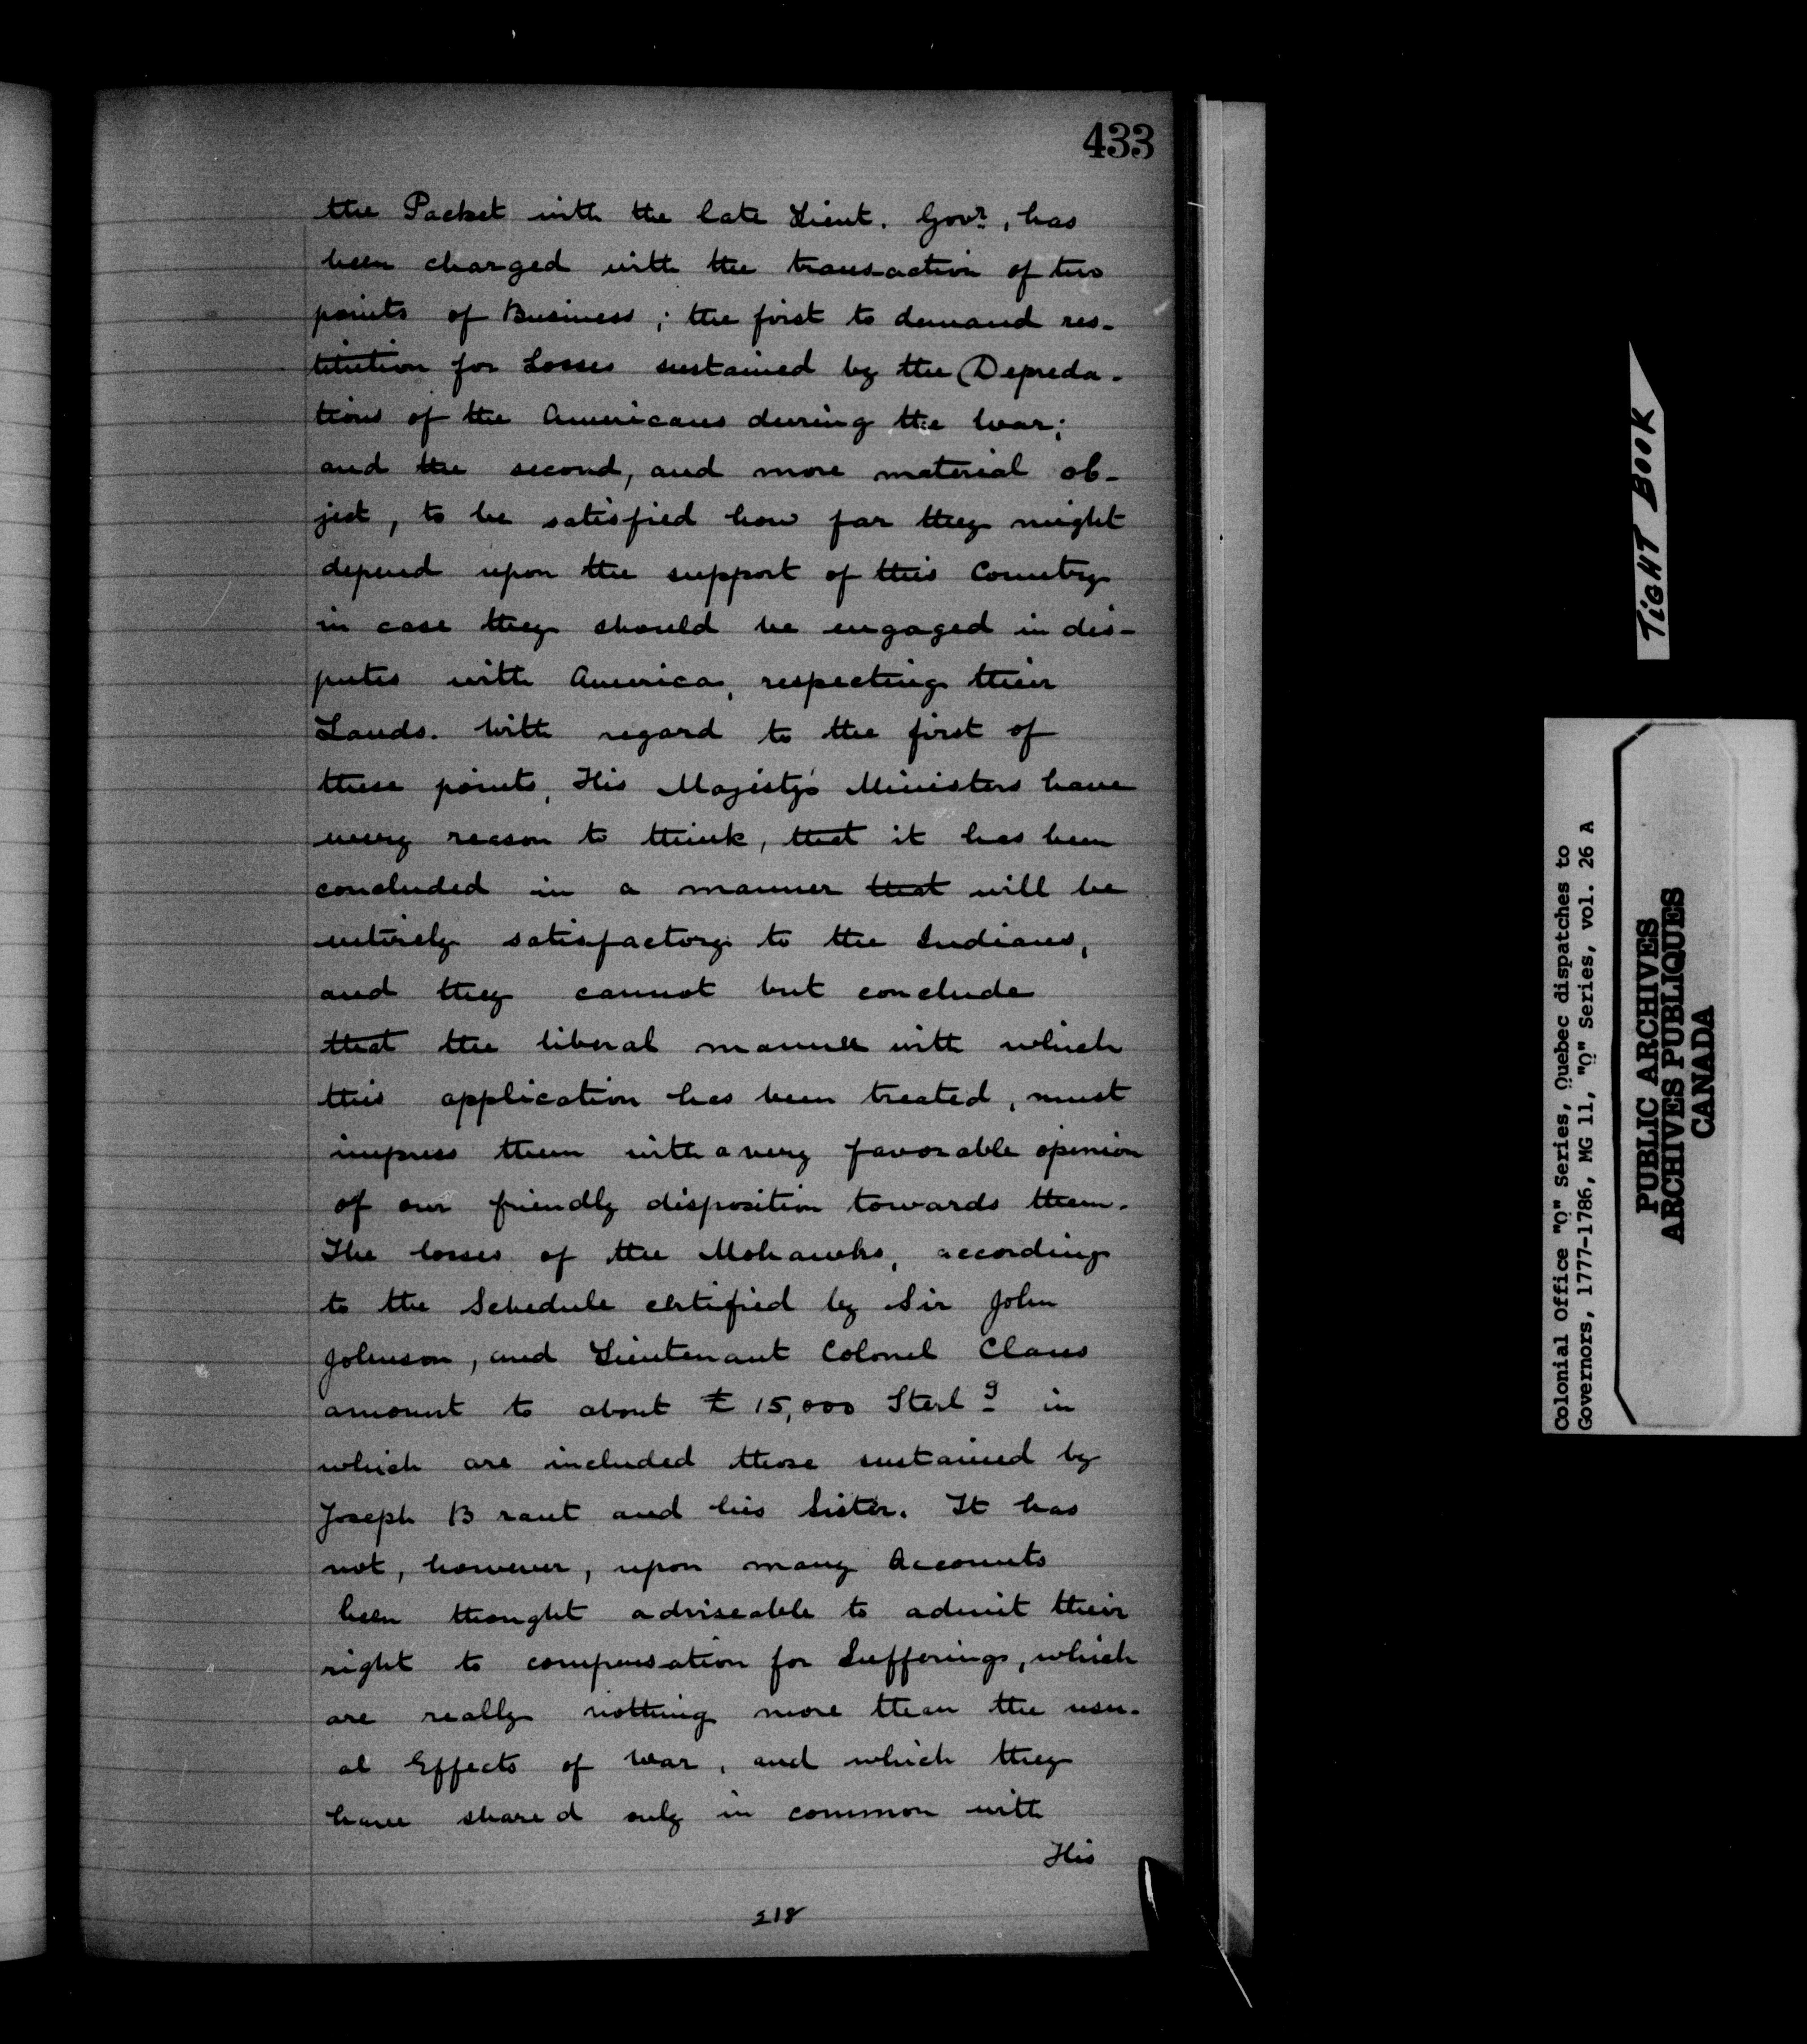 433
the Packet with the late Lieut. Govr., has
been charged with the transaction of two
points of Business; the first to demand res-
titution for Losses sustained by the Depreda-
tions of the Americans during the War;
and the second, and more material ob-
ject, to be satisfied how far they might
depend upon the support of this Country
in case they should be engaged in dis-
putes with America, respecting their
Lands. With regard to the first of
these points, His Majesty's Ministers have
every reason to think, that it has been
concluded in a manner that will be
entirely satisfactory to the Indians,
and they cannot but conclude
that the liberal manner with which
this application has been treated, must
impress them with a very favorable opinion
of our friendly disposition towards them.
The losses of the Mohawks, according
to the Schedule certified by Sir John
Johnson, and Lieutenant Colonel Claus
amount to about £15,000 Sterlg in
which are included those sustained by
Joseph Brant and his Sister. It has
not, however, upon many Accounts
been thought adviseable to admit their
right to compensation for Sufferings, which
are really nothing more than the usu-
al Effects of War, and which they
have shared only in common with
His
218
TIGHT BOOK
Colonial Office "Q" Series, Quebec dispatches to
Governors, 1777-1786, MG 11, "Q" Series, vol. 26 A
PUBLIC ARCHIVES
ARCHIVES PUBLIQUES
CANADA